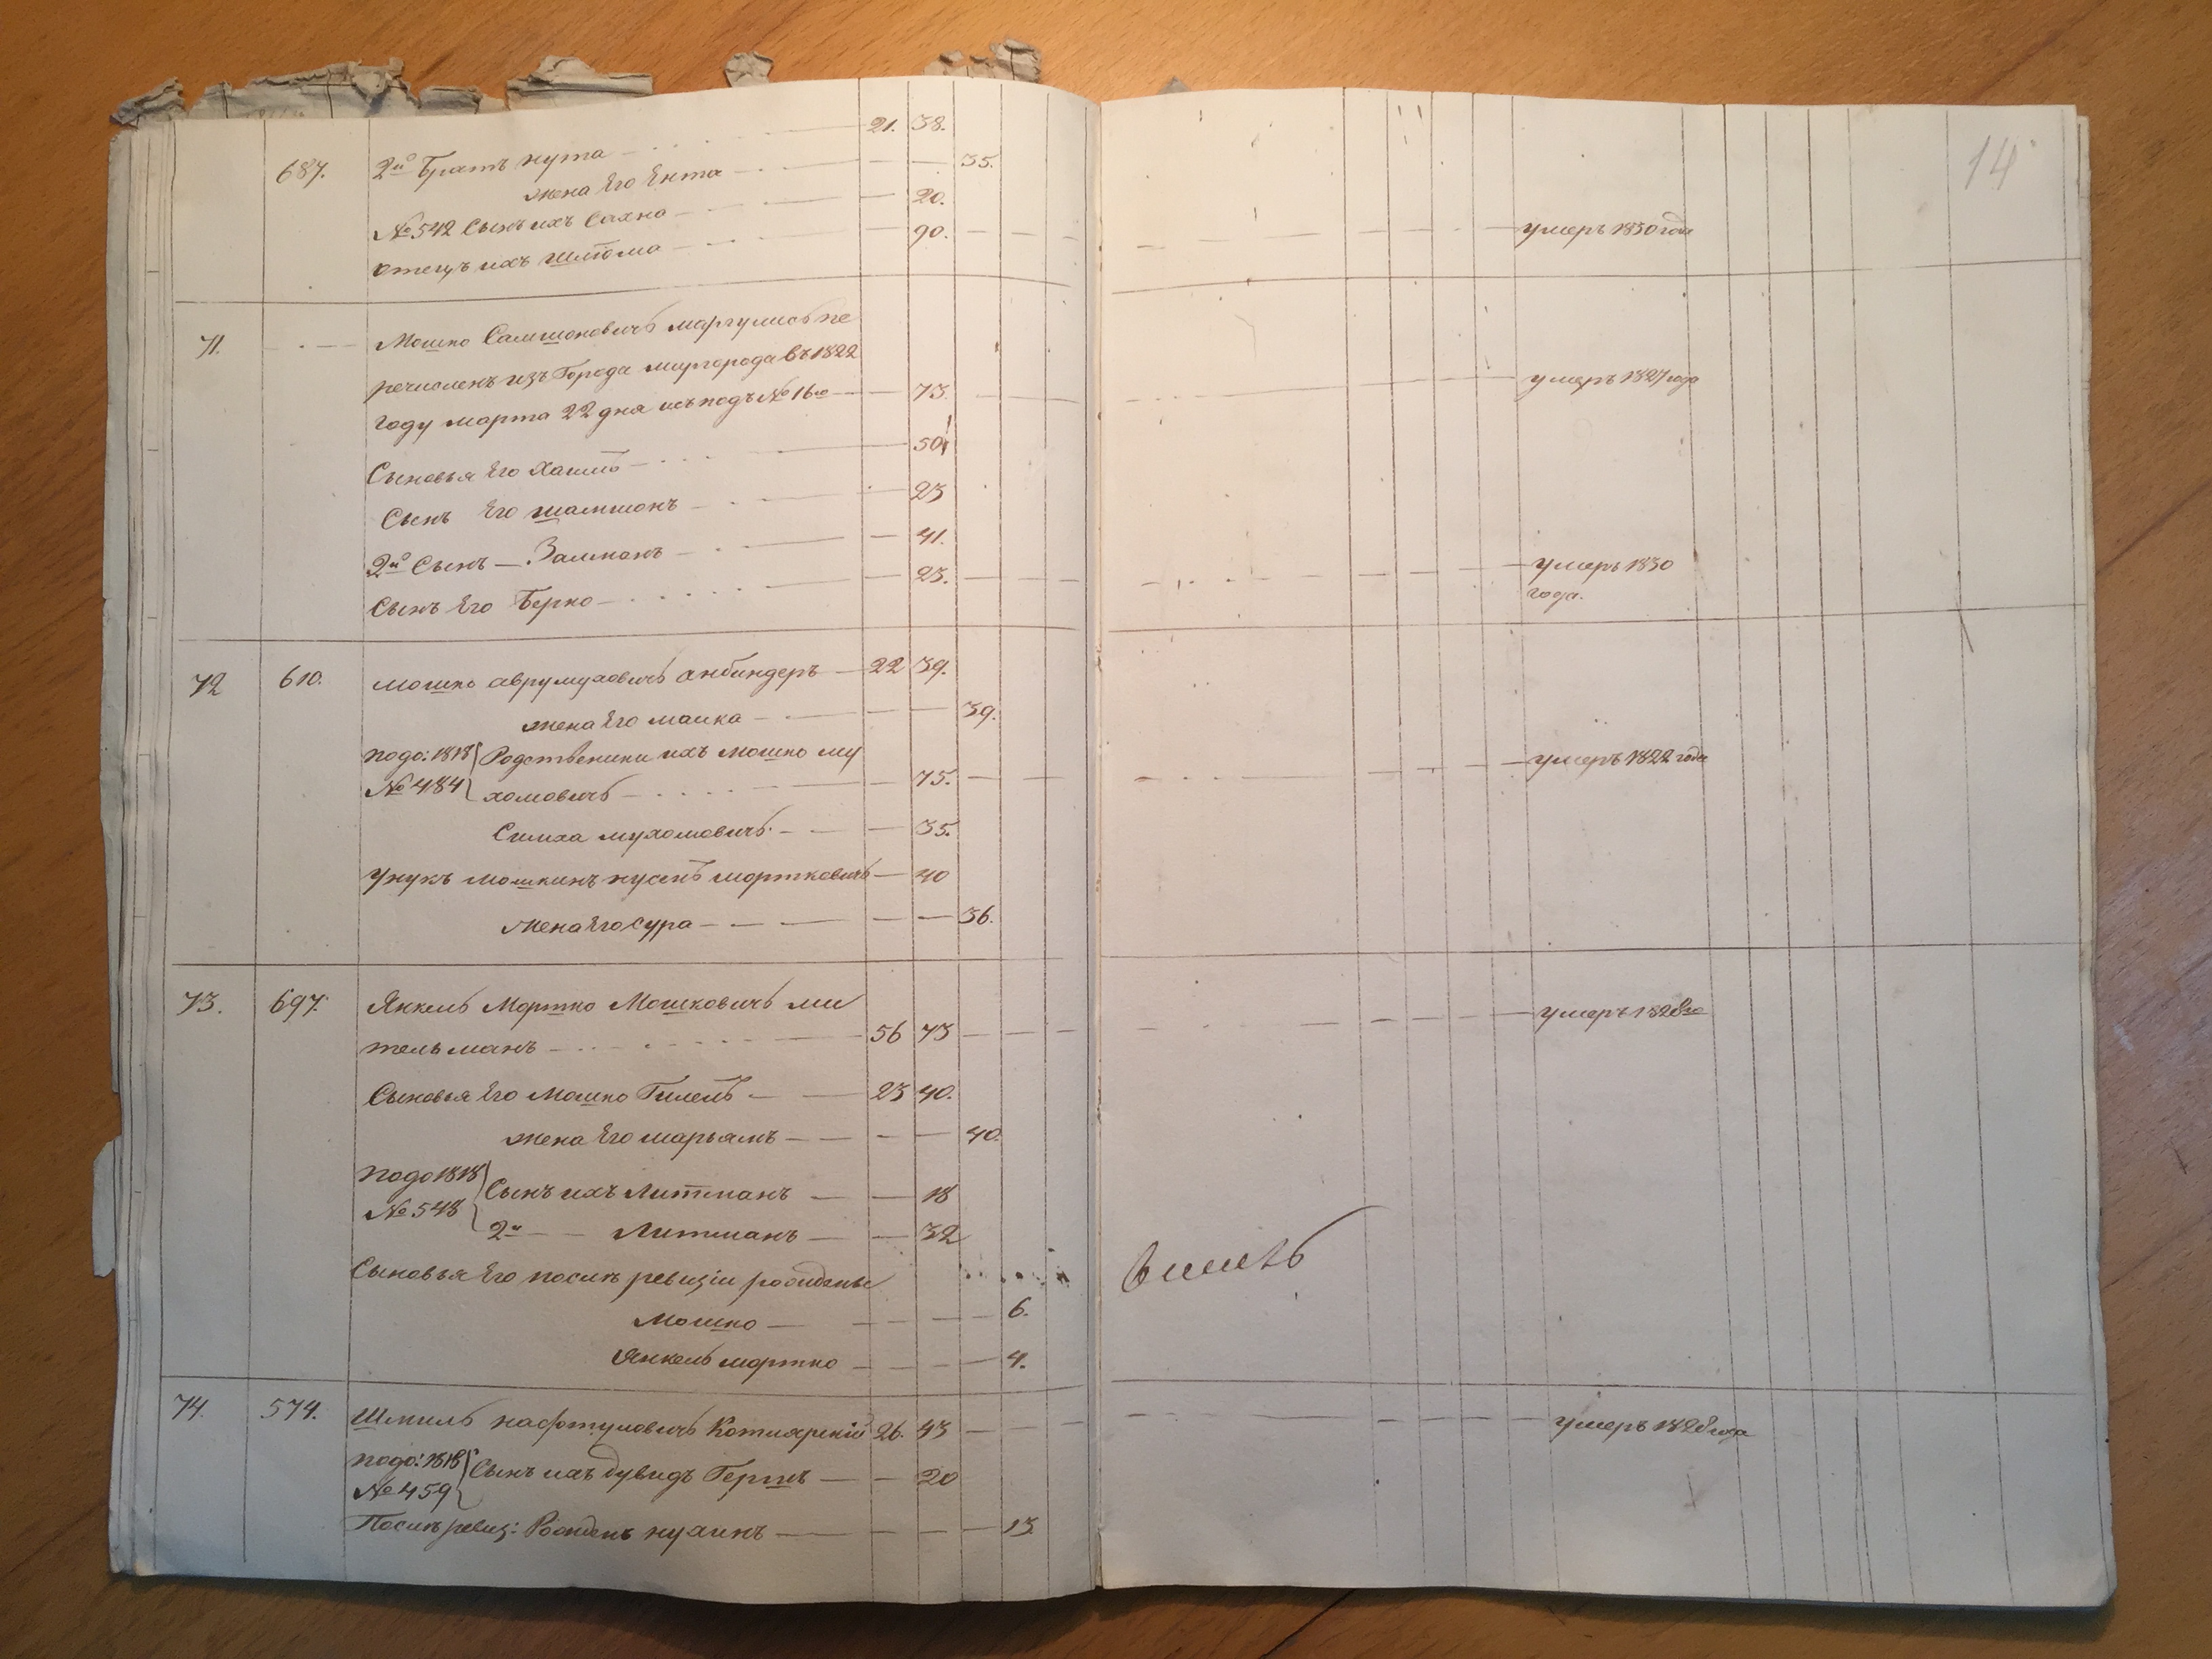 14
687. 2й Братъ нута 21. 38.
жена Его Ента 35.
№ 542 Сынъ ихъ Сахно 20.
отецъ ихъ шлёома 90. умеръ 1830 года
71. Мошко Самшоновичъ маргулисъ пе
речисленъ изъ Города миргорода въ 1822
году марта 22 дня изъ подъ № 16го 73. умеръ 1827 года
Сыновья Его Хаимъ 50
Сынъ Его шамшонъ 23
2й Сынъ Залманъ 41.
Сынъ Его Берко 23. умеръ 1830
года.
72 610. мошко аврумуховичъ анбиндеръ 22 39.
жена Его малка 39.
подо: 1818 Родственики ихъ мошко му
№ 484 хомовичъ 75. умеръ 1822 года
Симха мухомовичъ 35.
унукъ мошкинъ нусенъ мортковичъ 40
жена Его сура 36.
73. 697. Янкель Мортко Мошковичъ ми
тельманъ 56 73 умеръ 1828го
Сыновья Его Мошко Гилель 23 40.
жена Его марьямъ 40.
подо 1818 Сынъ ихъ Литманъ 18
№ 548 2й Литманъ 32
Сыновья Его послѣ ревизіи рожденые
Мошко 6.
Янкель мортко 4.
74. 574. Шмиль нафтуловичъ Котлярскій 26. 43 умеръ 1828 года
подо: 1818 Сынъ ихъ дувидъ Гершъ 20
№ 459
Послѣ ревиз: Рожденъ нухимъ 13.